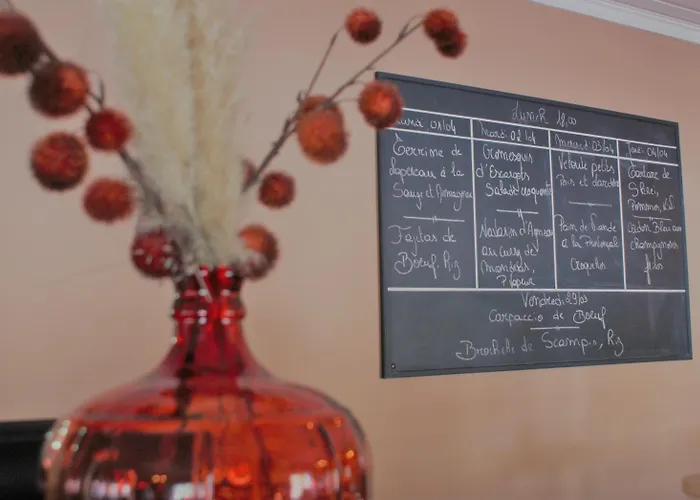 Lunch 18,00
Lundi 01/04
Terrine de
Lapereau à la
Sauge et Armagnac
Fajitas de
Boeuf, Riz
Mardi 02/04
Cromesquis
d'Escargots
Salade croquante
Navarin d'Agneau
au curry de
P.Vapeur
Mercredi 03/04
Velouté petits
Pois et
Pain de Viande
a la Provençale
Croquettes
Jeudi 04/04
Tartare
de
Cordon Bleu aux
champignons
Vendredi 29/03
Carpaccio de Boeuf
Brochette de Scampis, Riz